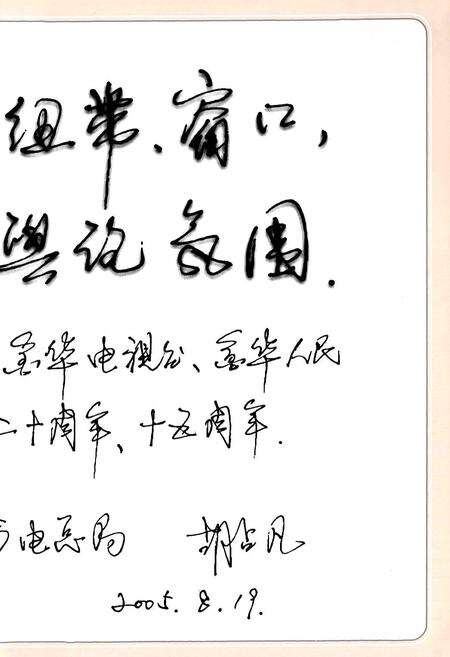 纽带、窗口，
舆论氛围.
金华电视台、金华人民
二十周年、十五周年.
电总局 胡占凡
2005.8.19.